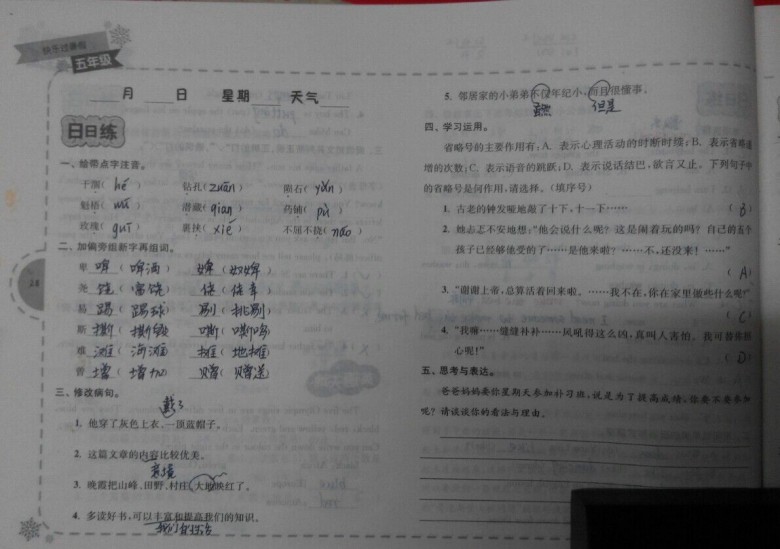 快乐过暑假
五年级
月 日 星期 天气
日日练
一、给带点字注音。
干涸(hé) 钻孔(zuān) 陨石(yǔn)
魁梧(wú) 潜藏(qián) 药铺(pù)
玫瑰(guī) 裹挟(xié) 不屈不挠(náo)
二、加偏旁组新字再组词。
卑 啤(啤酒) 婢(奴婢)
尧 饶(富饶) 侥(侥幸)
易 踢(踢球) 剔(挑剔)
斯 撕(撕毁) 嘶(嘶鸣)
难 滩(海滩) 摊(地摊)
曾 增(增加) 赠(赠送)
三、修改病句。
戴了
1. 他穿了灰色上衣、一顶蓝帽子。
2. 这篇文章的内容比较优美。
3. 晚霞把山峰、田野、村庄、大地映红了。
4. 多读好书,可以丰富和提高我们的知识。
28
5. 邻居家的小弟弟不仅年纪小,而且很懂事。
虽然 但是
四、学习运用。
省略号的主要作用有:A. 表示心理活动的时断时续;B. 表示省略递
增的次数;C. 表示语音的跳跃;D. 表示说话结巴,欲言又止。下列句子中
的省略号是何作用,请选择。(填序号)
1. 古老的钟发哑地敲了十下、十一下…… (B)
2. 她忐忑不安地想:“他会说什么呢?这是闹着玩的吗?自己的五个
孩子已经够他受的了……是他来啦?……不,还没来!……”
(A)
3. “谢谢上帝,总算活着回来啦。……我不在,你在家里做些什么呢?”
(C)
4. “我嘛……缝缝补补……风吼得这么凶,真叫人害怕。我可替你担
心呢!” (D)
五、思考与表达。
爸爸妈妈要你星期天参加补习班,说是为了提高成绩,你要不要参加
呢?请谈谈你的看法与理由。